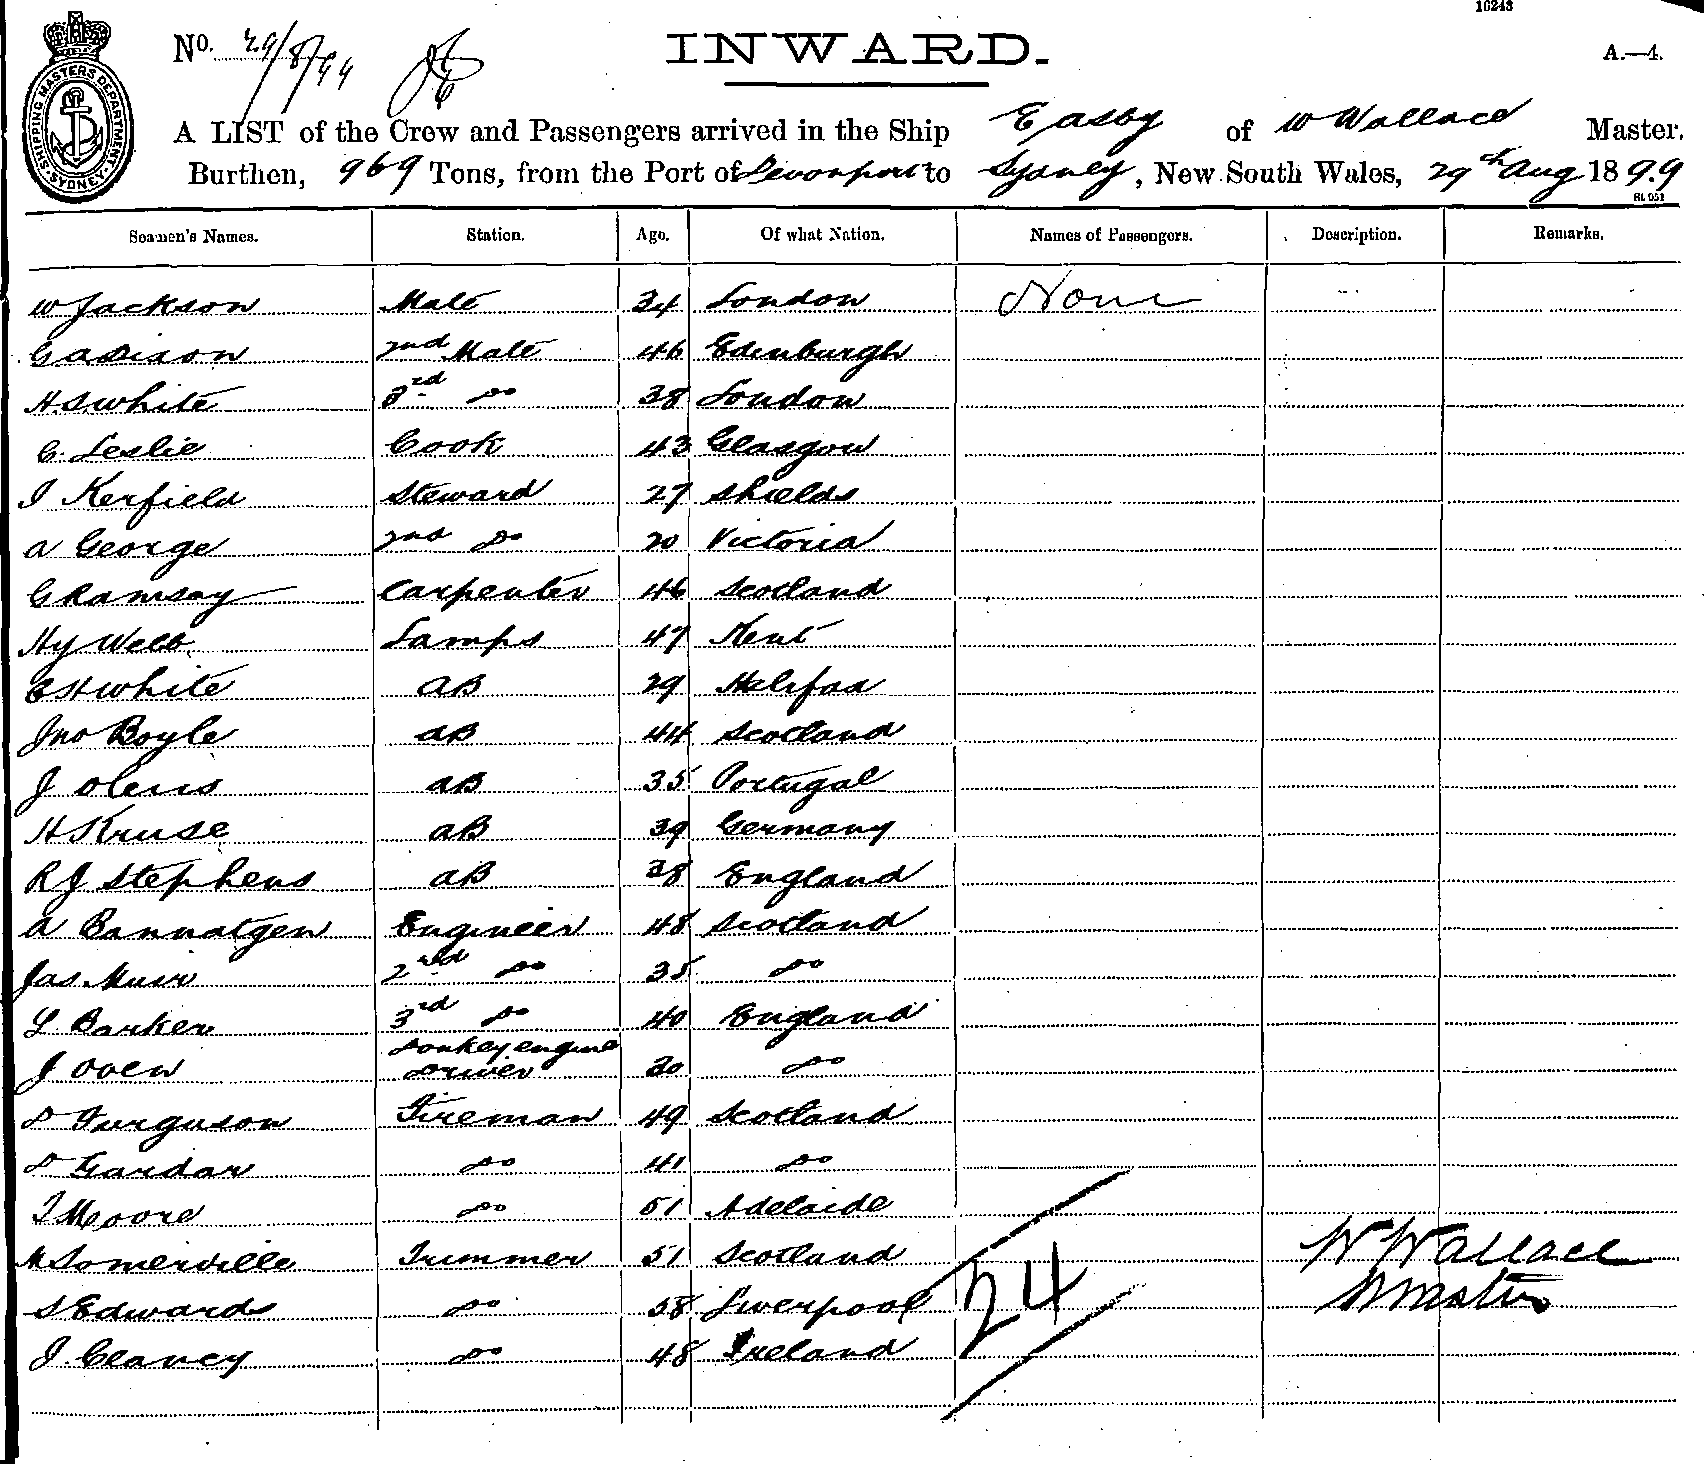 16243
No. 29/8/99
INWARD.
A.—4.
SHIPPING MASTERS DEPARTMENT. SYDNEY.
A LIST of the Crew and Passengers arrived in the Ship Easby of W Wallace Master,
Burthen, 969 Tons, from the Port of Devonport to Sydney, New South Wales, 29th Aug 1899
Seamen's Names. Station. Age. Of what Nation. Names of Passengers. Description. Remarks.
W Jackson Mate 34 London None
G Adison 2nd Mate 46 Edinburgh
H S White 3rd Do 38 London
C. Leslie Cook 43 Glasgow
J Kerfield Steward 27 Shields
A George 2nd Do 20 Victoria
G Ramsay Carpenter 46 Scotland
Hy Webb Lamps 47 Kent
C H White AB 29 Halifax
Jno Boyle AB 44 Scotland
J Olens AB 35 Portugal
H Kruse AB 39 Germany
R J Stephens AB 38 England
A Bannatgen Engineer 48 Scotland
Jas Muir 2nd Do 35 Do
L Barker 3rd Do 40 England
J Oven Donkey engine Driver 30 Do
D Furguson Fireman 49 Scotland
D Gardar Do 41 Do
T Moore Do 51 Adelaide
M Somerville Trimmer 51 Scotland
S Edwards Do 58 Liverpool
J. Clancy Do 48 Ireland
24
W Wallace
Master